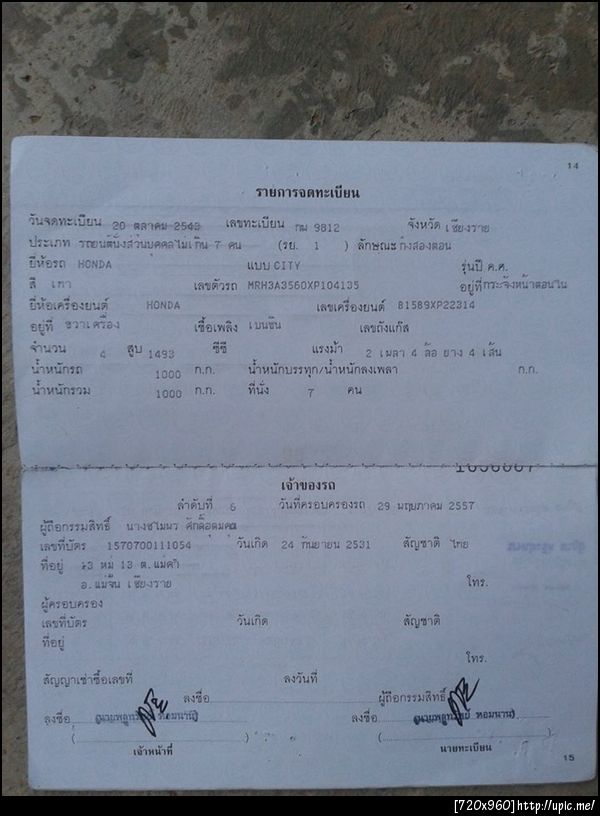 14
รายการจดทะเบียน
วันจดทะเบียน 20 ตุลาคม 2543 เลขทะเบียน กม 9812 จังหวัด เชียงราย
ประเภท รถยนต์นั่งส่วนบุคคลไม่เกิน 7 คน (รย. 1 ) ลักษณะ เก๋งสองตอน
ยี่ห้อรถ HONDA แบบ CITY รุ่นปี ค.ศ.
สี เทา เลขตัวรถ MRH3A3560XP104135 อยู่ที่ กระจังหน้าตอนใน
ยี่ห้อเครื่องยนต์ HONDA เลขเครื่องยนต์ 81589XP22314
อยู่ที่ ขวาเครื่อง เชื้อเพลิง เบนซิน เลขถังแก๊ส
จำนวน 4 สูบ 1493 ซีซี แรงม้า 2 เพลา 4 ล้อ ยาง 4 เส้น
น้ำหนักรถ 1000 ก.ก. น้ำหนักบรรทุก/น้ำหนักลงเพลา ก.ก.
น้ำหนักรวม 1000 ก.ก. ที่นั่ง 7 คน
เจ้าของรถ
ลำดับที่ 6 วันที่ครอบครองรถ 29 พฤษภาคม 2557
ผู้ถือกรรมสิทธิ์
เลขที่บัตร 1570700111054 วันเกิด 24 กันยายน 2531 สัญชาติ ไทย
ที่อยู่ หมู่ 13 ต.แม่คำ
อ.แม่จัน เชียงราย โทร.
ผู้ครอบครอง
เลขที่บัตร วันเกิด สัญชาติ
ที่อยู่
โทร.
สัญญาเช่าซื้อเลขที่ ลงวันที่
ลงชื่อ ผู้ถือกรรมสิทธิ์
ลงชื่อ ลงชื่อ
เจ้าหน้าที่ นายทะเบียน
15
[720x960]http://upic.me/